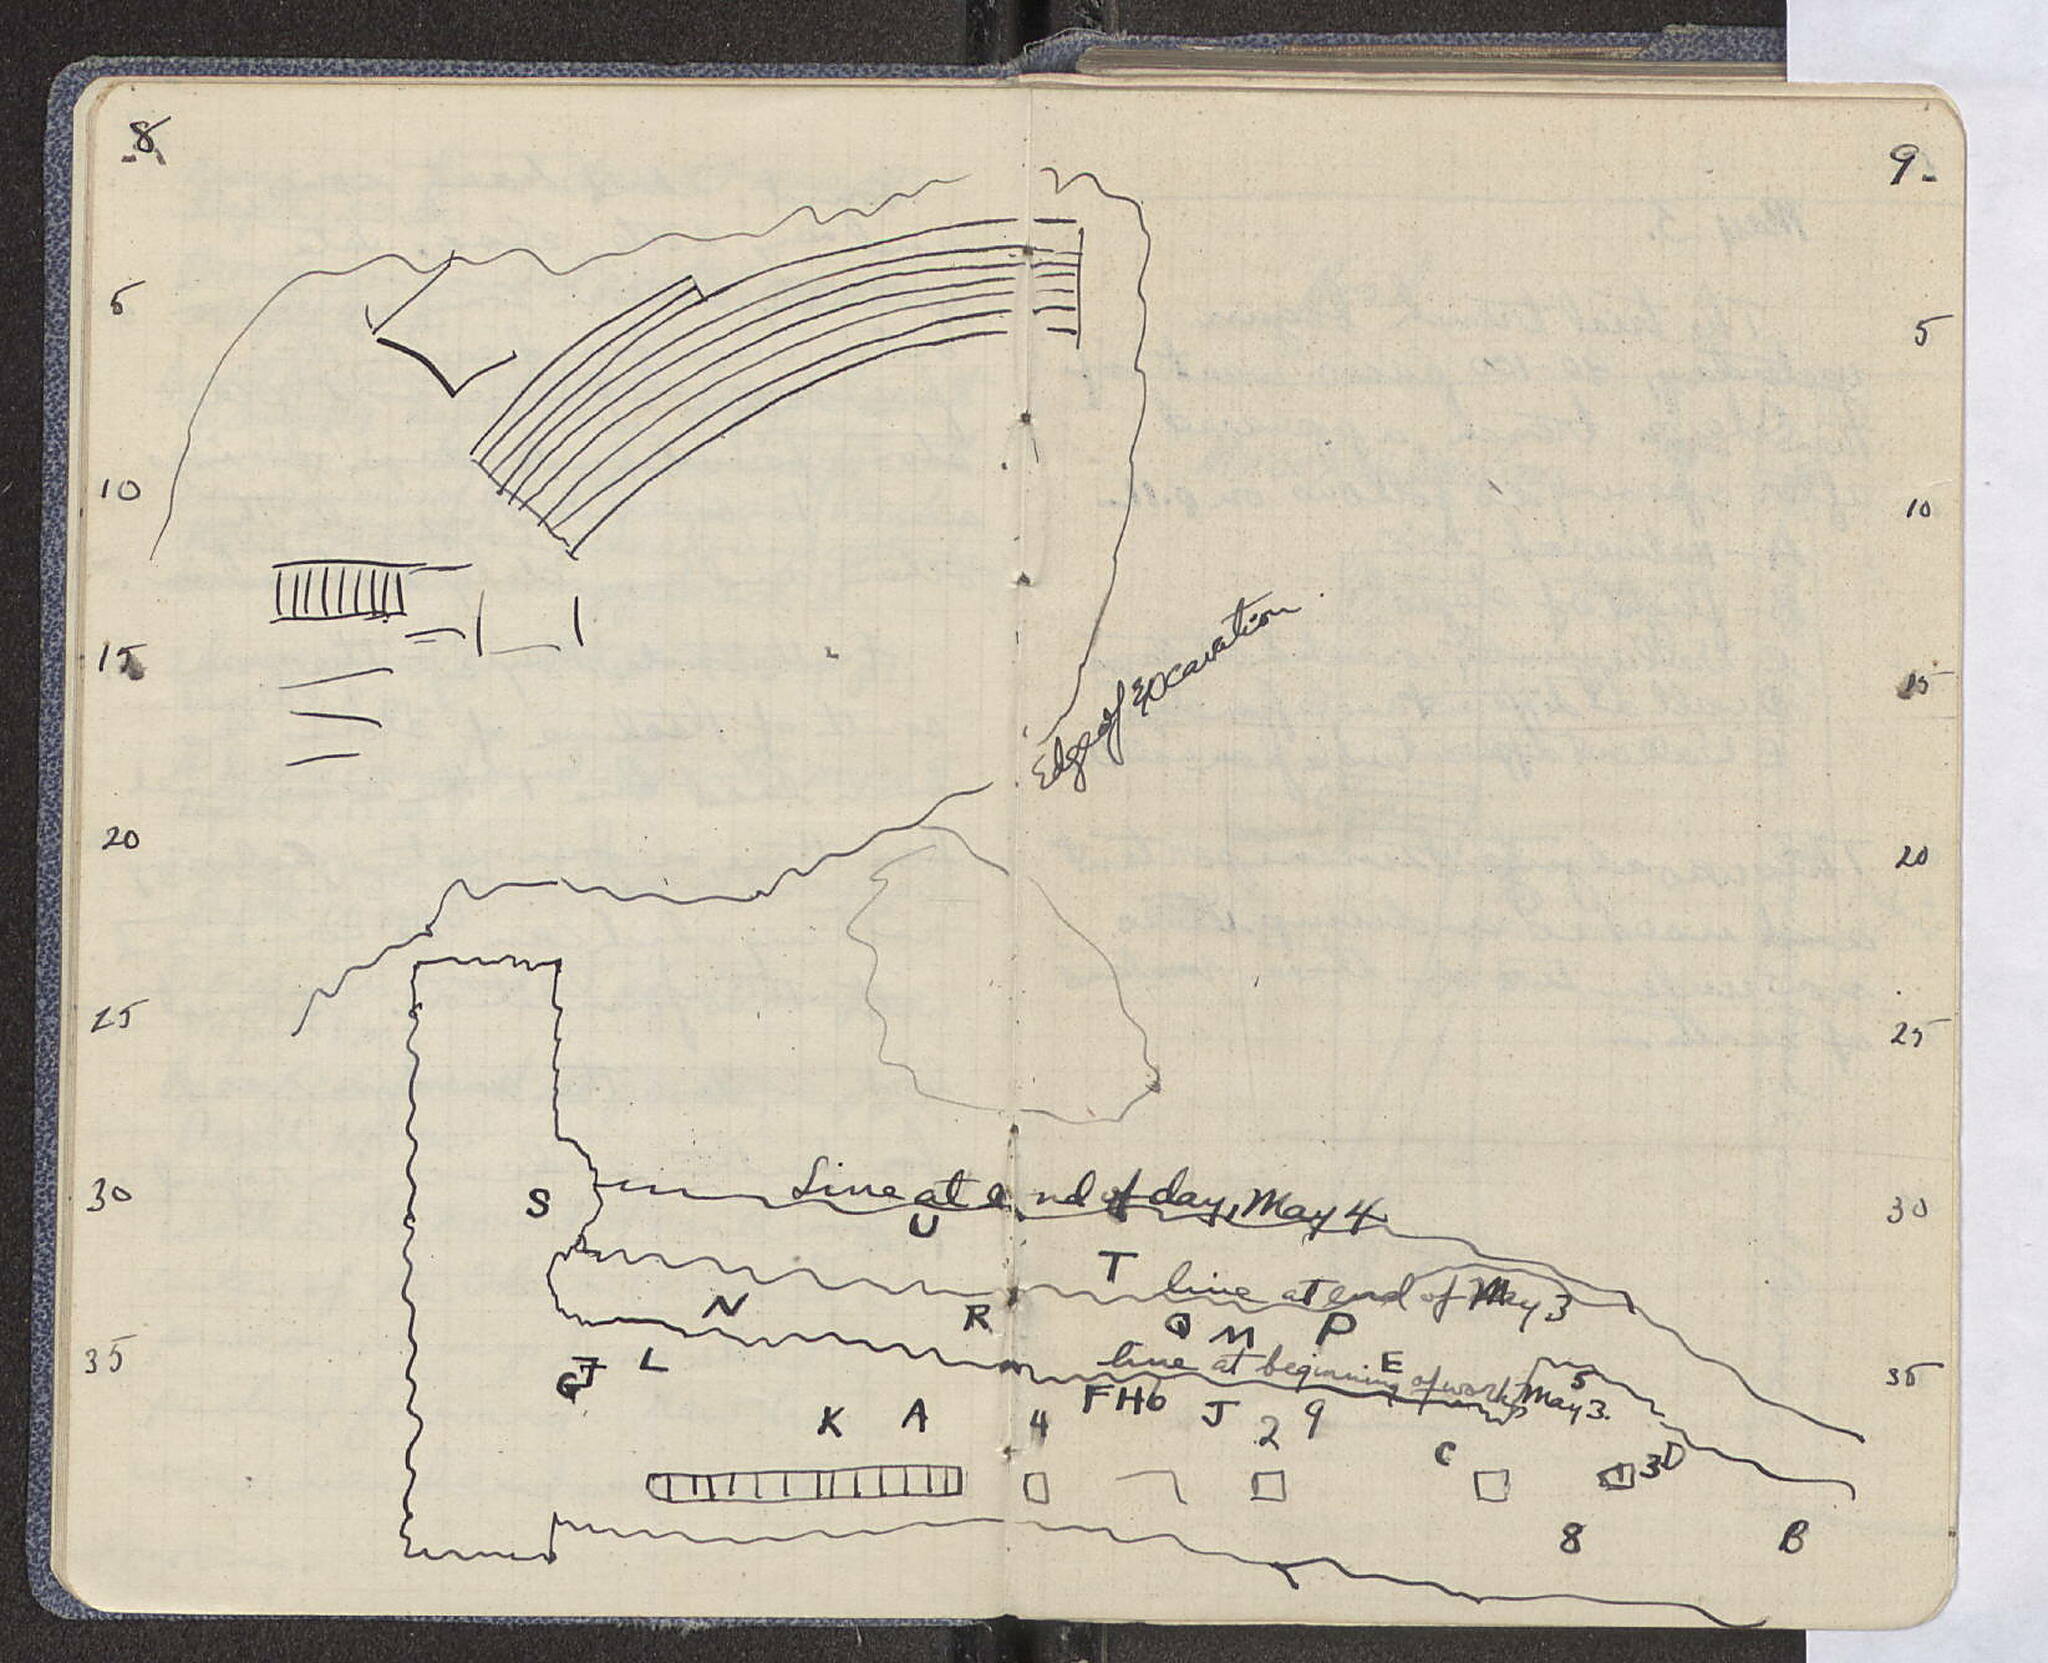 8
9
5
5
10
10
15
15
Edge of Excavation
20
20
25
25
30
30
S
Line at end of day, May 4
U
T
line at end of May 3
N
R
Q M P
35
35
G J L
line at beginning of work, May 3.
E
5
F H 6 J
K A 4
2 9
C
1 3 D
8 B